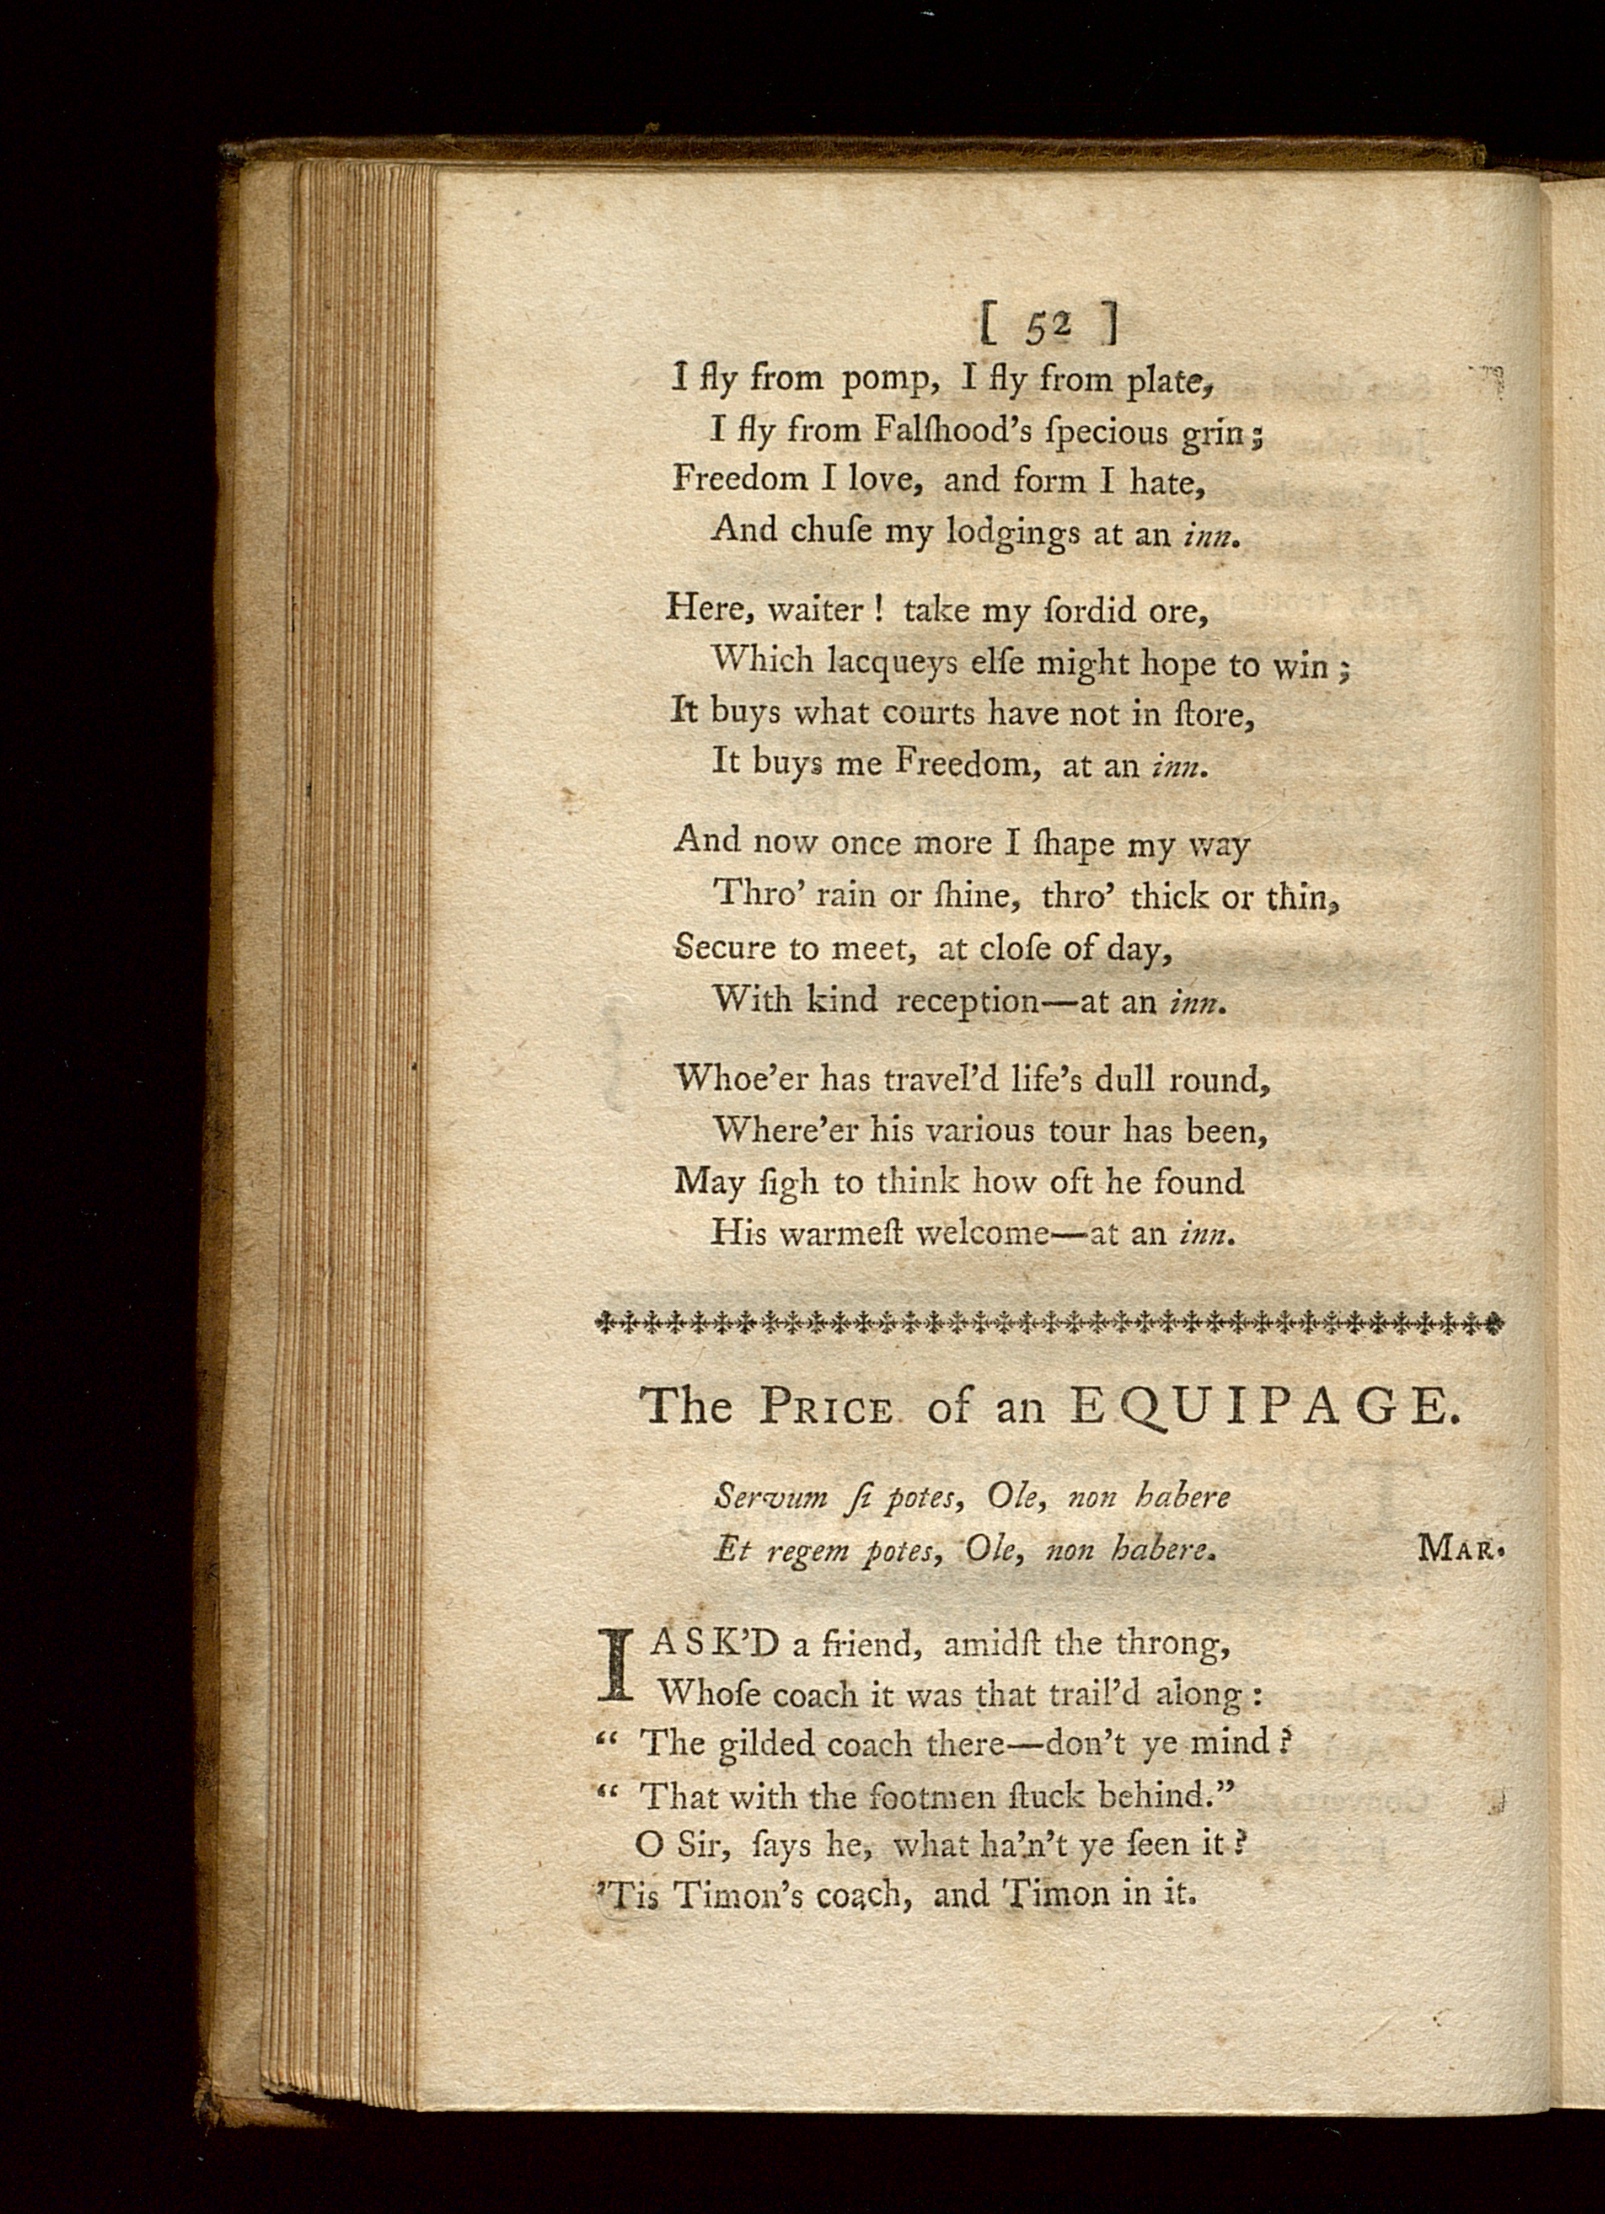 [ 52 ]
I fly from pomp, I fly from plate,
I fly from Falſhood's ſpecious grin;
Freedom I love, and form I hate,
And chuſe my lodgings at an inn.
Here, waiter! take my ſordid ore,
Which lacqueys elſe might hope to win;
It buys what courts have not in ſtore,
It buys me Freedom, at an inn.
And now once more I ſhape my way
Thro' rain or ſhine, thro' thick or thin,
Secure to meet, at cloſe of day,
With kind reception—at an inn.
Whoe'er has travel'd life's dull round,
Where'er his various tour has been,
May ſigh to think how oft he found
His warmeſt welcome—at an inn.
The PRICE of an EQUIPAGE.
Servum ſi potes, Ole, non habere
Et regem potes, Ole, non habere. MAR.
I ASK'D a friend, amidſt the throng,
Whoſe coach it was that trail'd along:
“ The gilded coach there—don't ye mind?
“ That with the footmen ſtuck behind.”
O Sir, ſays he, what ha'n't ye ſeen it?
'Tis Timon's coach, and Timon in it.